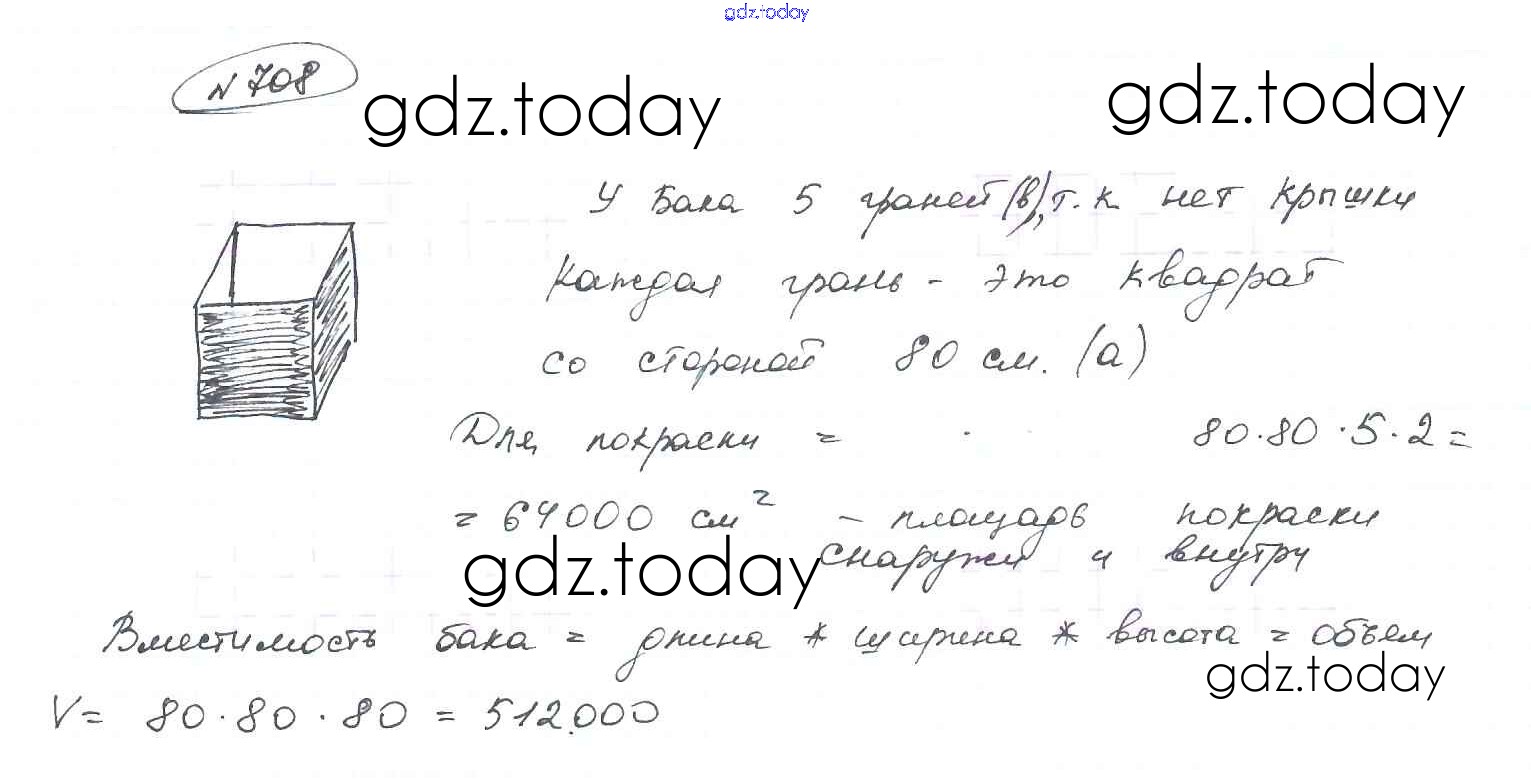 gdz.today
N 708
gdz.today
gdz.today
У бака 5 граней (в), т.к нет крышки
Каждая грань - это квадрат
со стороной 80 см. (а)
Для покраски = 80·80·5·2 =
= 64000 см² - площадь покраски
снаружи и внутри
gdz.today
Вместимость бака = длина * ширина * высота = объем
gdz.today
V = 80·80·80 = 512.000